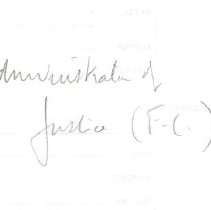 Administration of
Justice (F-C.)